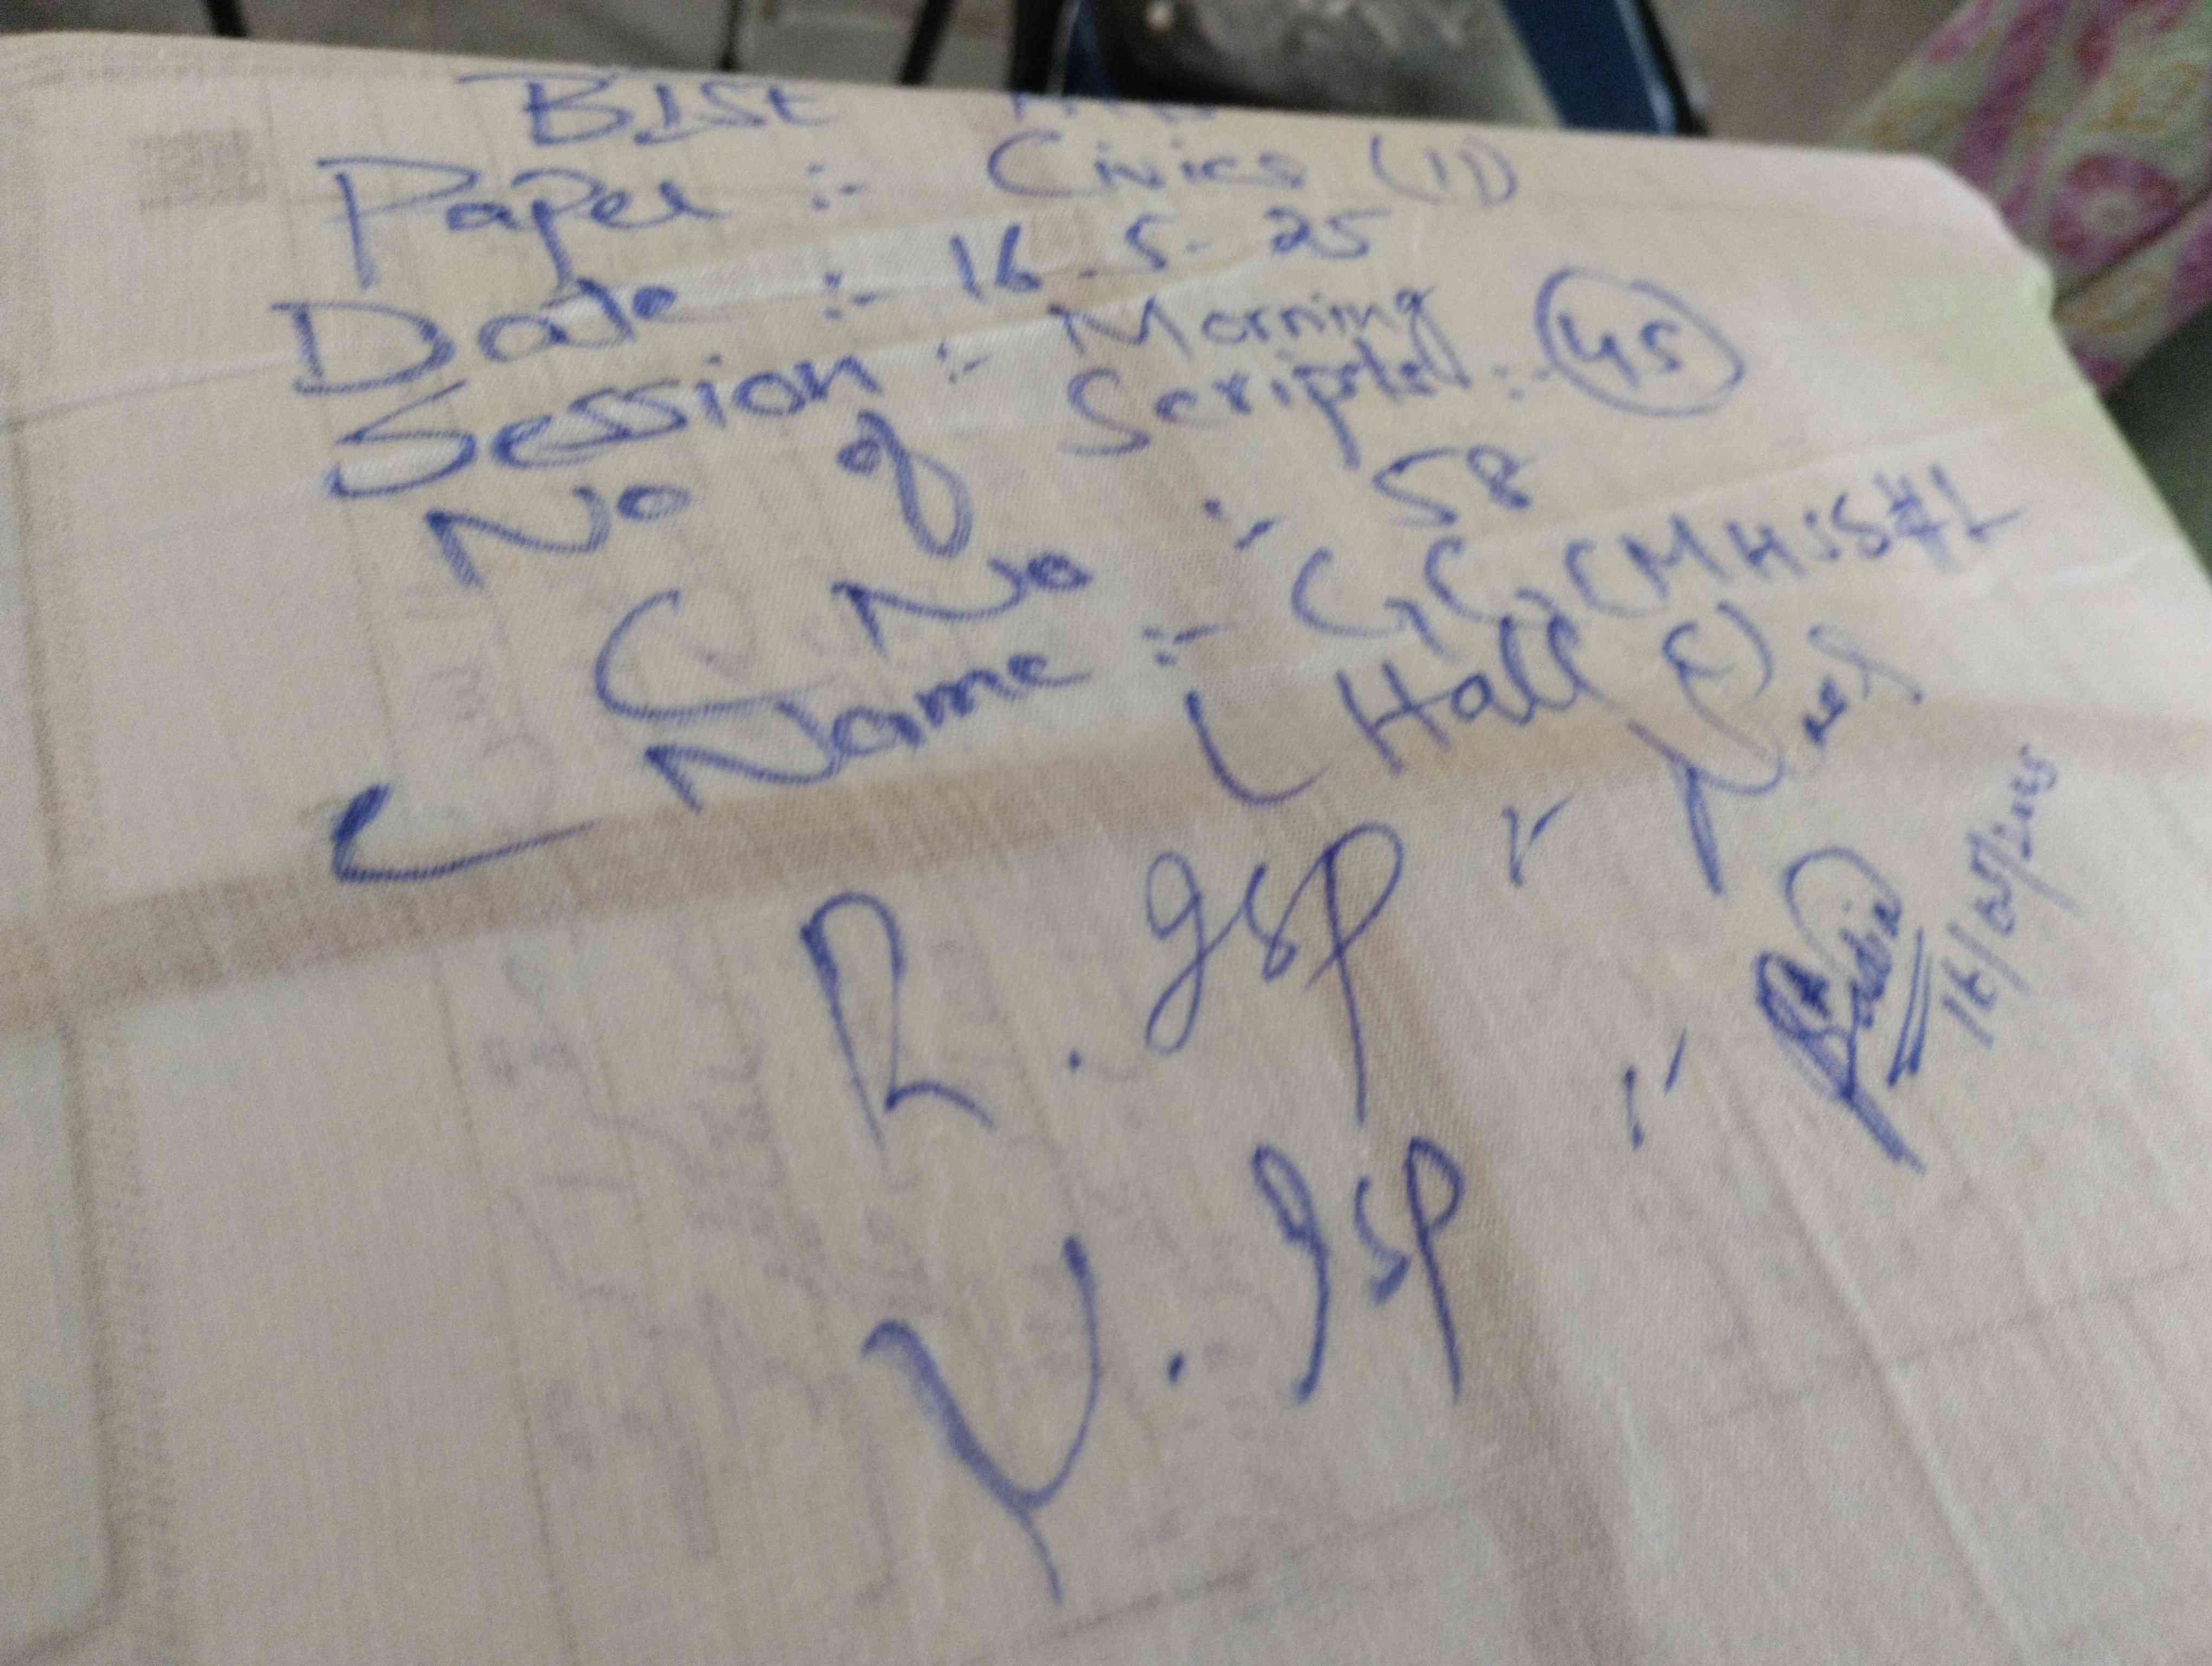 BISE
Paper :- Civics (II)
Date :- 16-5-25
Session :- Morning
No of Scripts :- 45
C No :- 58
C Name :- GGCMHSS#1
(Hall E)
R. Isp :-
V. Isp :- Sadia
16/05/2025